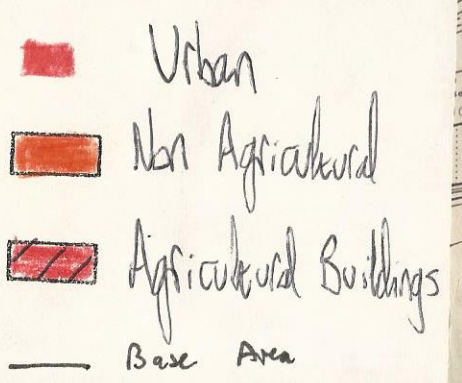 Urban
Non Agricultural
Agricultural Buildings
Base Area